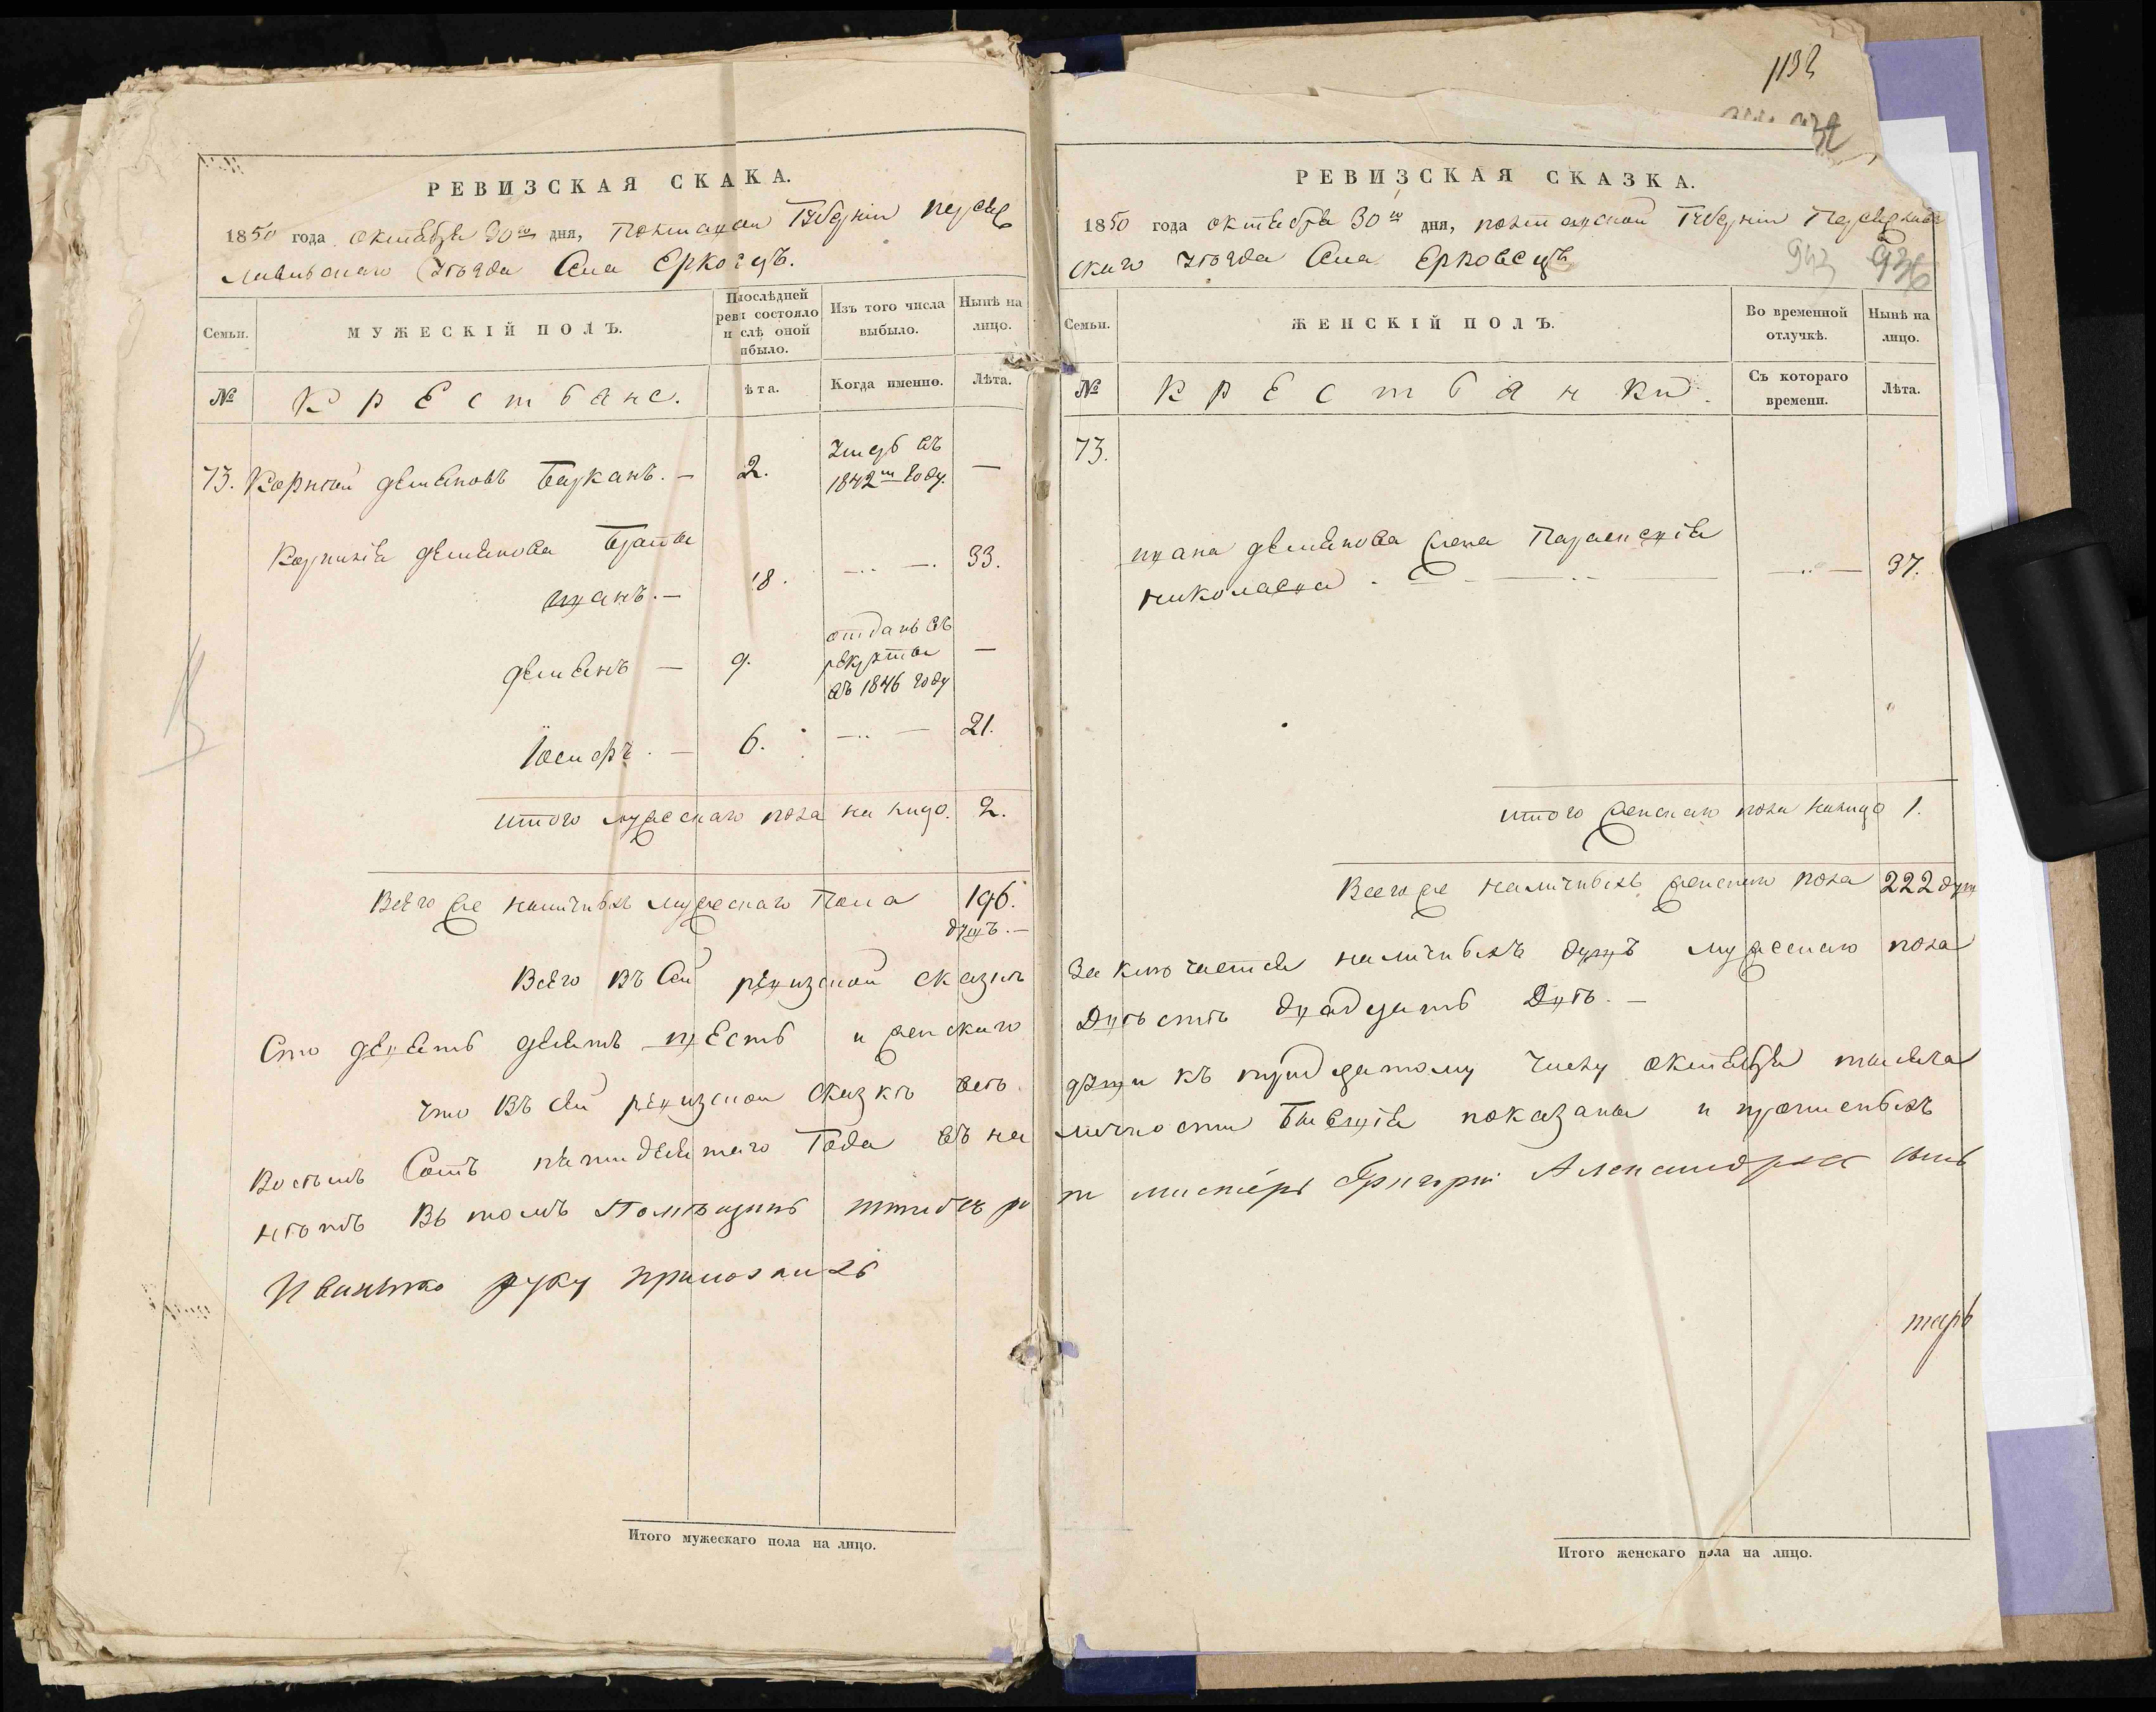 1132
РЕВИЗСКАЯ СКАКА.
1850 года октября 30го дня, Полтавской Губерніи Переяс
лавльскаго Уѣзда Села Ерковецъ.
Семьи.
МУЖЕСКІЙ ПОЛЪ.
Пос лѣдней
реви состояло
и слѣ оной
ибыло.
Изъ того числа
выбыло.
Нынѣ на
лицо.
№
Крестьяне.
ѣта.
Когда именно.
Лѣта.
73. Корнѣй Демьяновъ Баржанъ. — 2. Умеръ въ 1842м году. —
Корнилія Демьянова Братья
Иванъ. — 18. —..—. 33.
Демьянъ — 9. отданъ въ рекруты въ 1846 году —
Іосифъ. — 6. —..— 21.
Итого мужескаго пола на лицо. 2.
Всего же наличныхъ мужескаго Пола 196.
душъ. —
Всего въ сей ревизской сказкѣ
Сто девять десятъ шесть и женскаго
что въ сей ревизской сказкѣ всѣ
Восемь Сотъ пятидесятаго Года въ на
нѣтъ въ томъ Помѣщикъ
руку приложилъ
Итого мужескаго пола на лицо.
РЕВИЗСКАЯ СКАЗКА.
1850 года октября 30го дня, Полтавской Губерніи Переяславль
скаго Уѣзда Села Ерковецъ
943 936
Семьи.
ЖЕНСКІЙ ПОЛЪ.
Во временной
отлучкѣ.
Нынѣ на
лицо.
№
Крестьянки.
Съ котораго
времени.
Лѣта.
73.
Ивана Демьянова жена Параскевія
Николаева. —..— —..— 37.
Итого женскаго пола на лицо 1.
Всего же наличныхъ женскаго пола 222 душ
Заключается наличныхъ душъ мужескаго пола
Двѣсти двадцать двѣ. —
души къ тридцатому числу октября тысяча
личности бывшія показаны и прописныхъ
Григорій Александровъ сынъ
Итого женскаго пола на лицо.